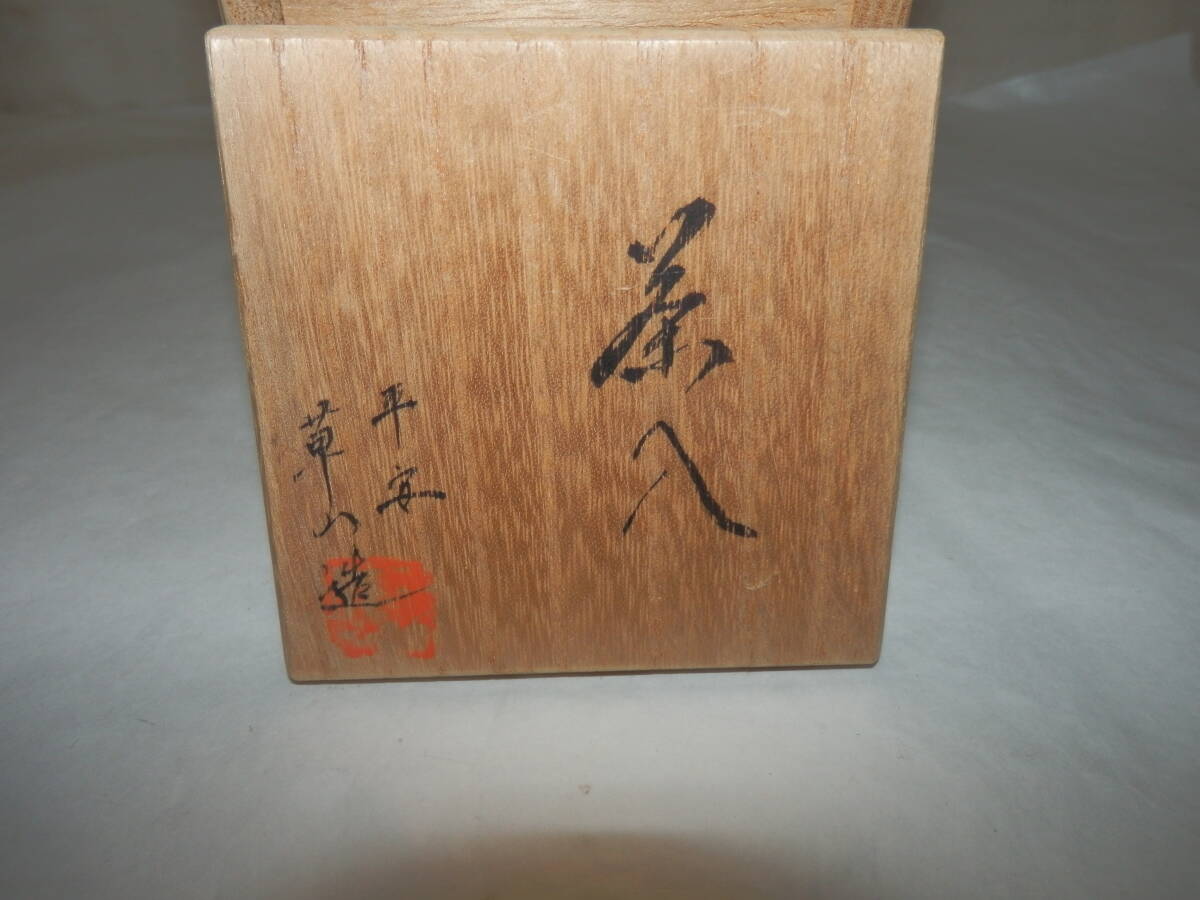 茶入
平安
草山造